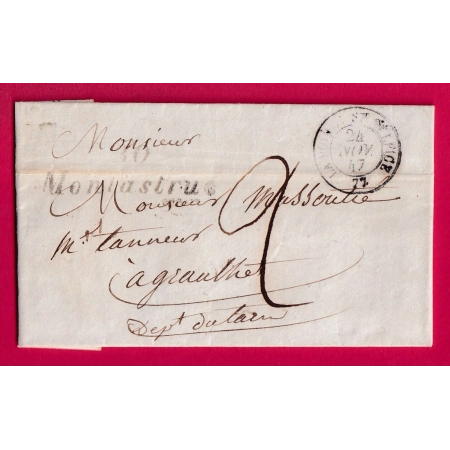 Monsieur
30
Montastruc
Monsieur Massoutie
Md tanneur
a graulhet
Dept du tarn
2
24
NOV.
47
77